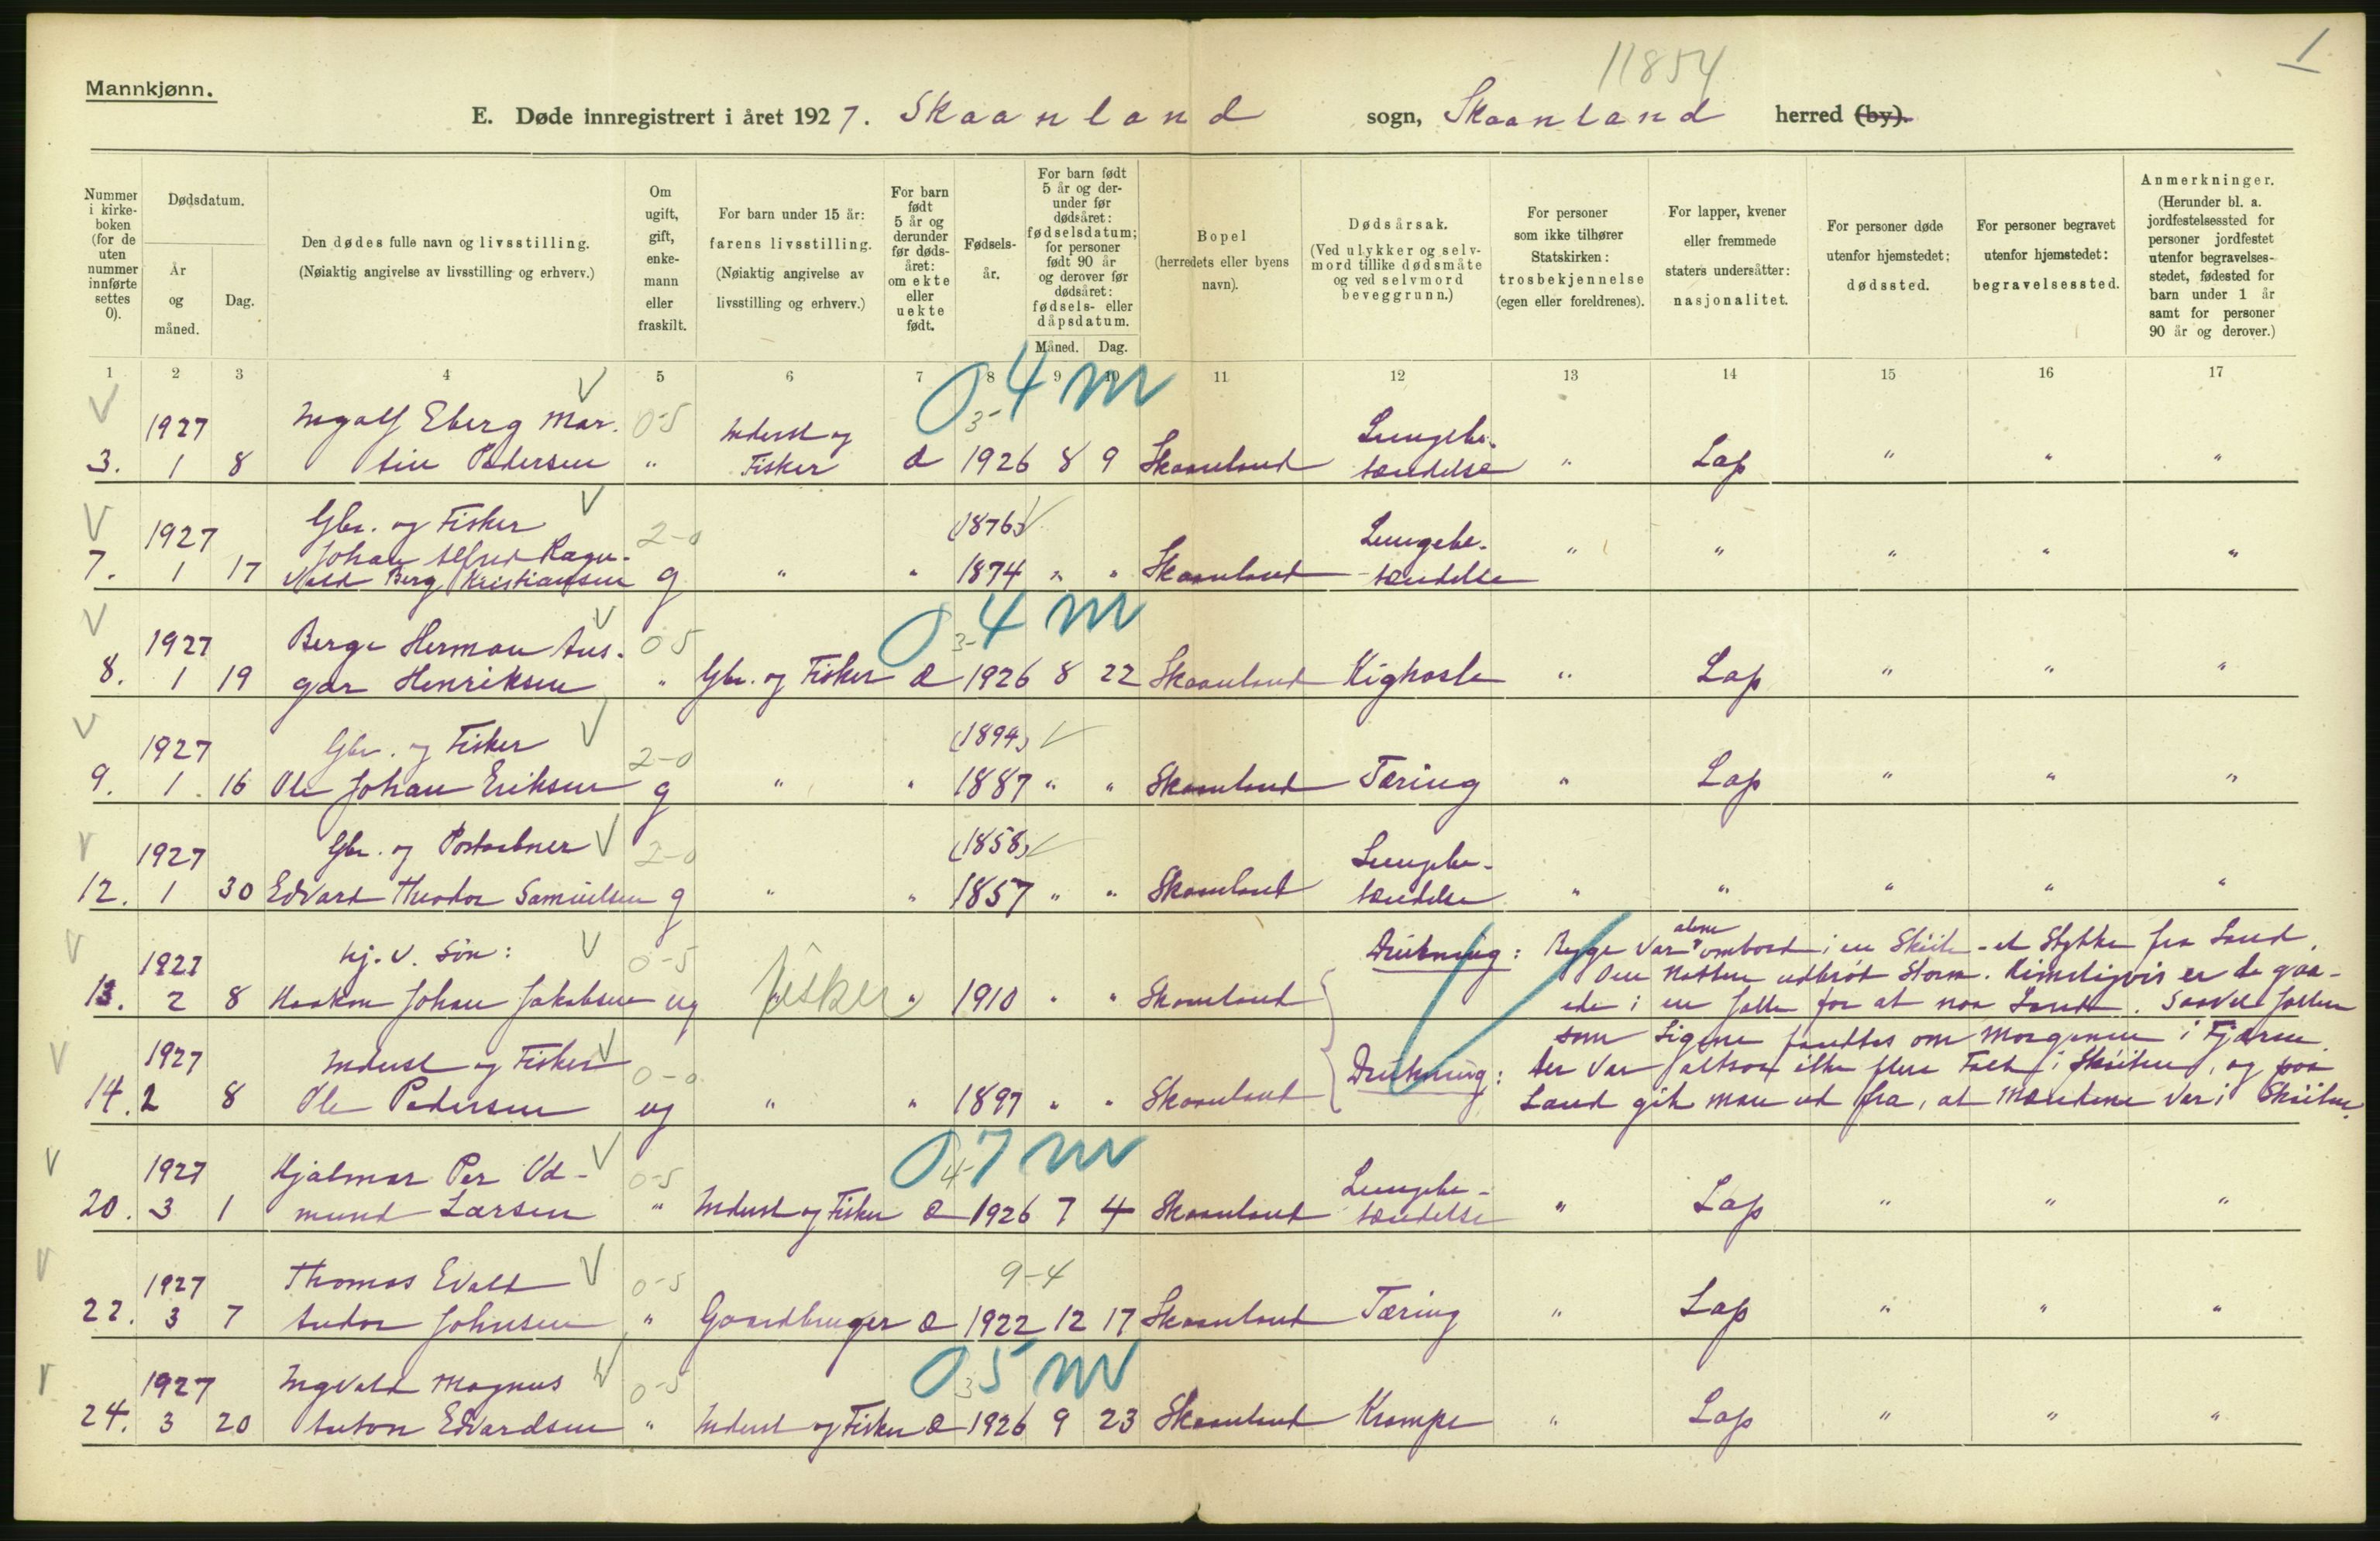 11854
1
Mannkjønn.
E. Døde innregistrert i året 1927. Skaanland sogn, Skaanland herred (by).
Nummer i kirke-boken (for de uten nummer innførte settes 0).
Dødsdatum.
År og måned.
Dag.
Den dødes fulle navn og livsstilling.
(Nøiaktig angivelse av livsstilling og erhverv.)
Om ugift, gift, enke-mann eller fraskilt.
For barn under 15 år: farens livsstilling.
(Nøiaktig angivelse av livsstilling og erhverv.)
For barn født 5 år og derunder før døds-året: om ekte eller uekte født.
Fødsels-år.
For barn født 5 år og der-under før dødsåret: fødselsdatum; for personer født 90 år og derover før dødsåret: fødsels- eller dåpsdatum.
Måned. Dag.
Bopel (herredets eller byens navn).
Dødsårsak.
(Ved ulykker og selv-mord tillike dødsmåte og ved selvmord beveggrunn.)
For personer som ikke tilhører Statskirken: trosbekjennelse (egen eller foreldrenes).
For lapper, kvener eller fremmede staters undersåtter: nasjonalitet.
For personer døde utenfor hjemstedet; dødssted.
For personer begravet utenfor hjemstedet: begravelsessted.
Anmerkninger.
(Herunder bl. a. jordfestelsessted for personer jordfestet utenfor begravelses-stedet, fødested for barn under 1 år samt for personer 90 år og derover.)
1 2 3 4 5 6 7 8 9 10 11 12 13 14 15 16 17
0 4 m
1927 Ingolf Eberg Mar- 0-5 Inderst og 3- Lungebe-
3. 1 8 tin Pedersen " Fisker æ 1926 8 9 Skaanland tændelse " Lap " " "
Gbr. og Fisker (1876)
1927 Johan Alfred Ragn- 2-0 Lungebe-
7. 1 17 vald Berg Kristiansen g " " 1874 " " Skaanland tændelse " " " " "
0 4 m
1927 Berge Herman Ans- 0 5 3-
8. 1 19 gar Henriksen " Gbr. og Fisker æ 1926 8 22 Skaanland Kighoste " Lap " " "
1927 Gbr. og Fisker 2-0 (1894)
9. 1 16 Ole Johan Eriksen g " " 1887 " " Skaanland Tæring " Lap " " "
1927 Gbr. og Postaabner 2-0 (1858) Lungebe-
12. 1 30 Edvard Theodor Samuelsen g " " 1857 " " Skaanland tændelse " " " " "
1927 Hj. v. Søn: 0-5 Drukning: Begge var alene ombord i en Skøite - et Stykke fra Land.
13. 2 8 Haakon Johan Jakobsen ug fisker " 1910 " " Skaanland
Om Natten udbrøt Storm. Rimeligvis er de gaa-
ede i en Jolle for at naa Land. Saavel Jollen
som Ligene fandtes om Morgenen i Fjæren.
1927 Inderst og Fisker 0-0 Drukning: Der var altsaa ikke flere Folk i Skøiten, og paa
14. 2 8 Ole Pedersen ug " " 1897 " " Skaanland
Land gik man ud fra, at Mændene var i Skøiten.
0 7 m
1927 Hjalmar Per Ed- 0-5 4- Lungebe-
20. 3 1 mund Larsen " Inderst og Fisker æ 1926 7 4 Skaanland tændelse " Lap " " "
1927 Thomas Evald 0-5 9-4
22. 3 7 Andor Johnsen " Gaardbruger æ 1922 12 17 Skaanland Tæring " Lap " " "
0 5 m
1927 Ingvald Magnus 0-5 3
24. 3 20 Anton Edvardsen " Inderst og Fisker æ 1926 9 23 Skaanland Krampe " Lap " " "